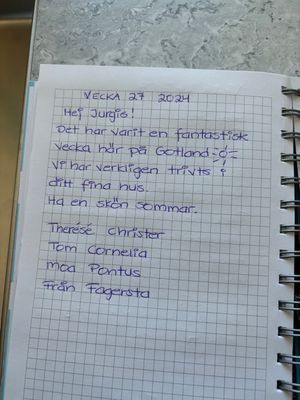 VECKA 27 2024
Hej Jurgis!
Det har varit en fantastisk
vecka här på Gotland
Vi har verkligen trivts i
ditt fina hus.
Ha en skön sommar.
Therésé Christer
Tom Cornelia
moa Pontus
Från Fagersta